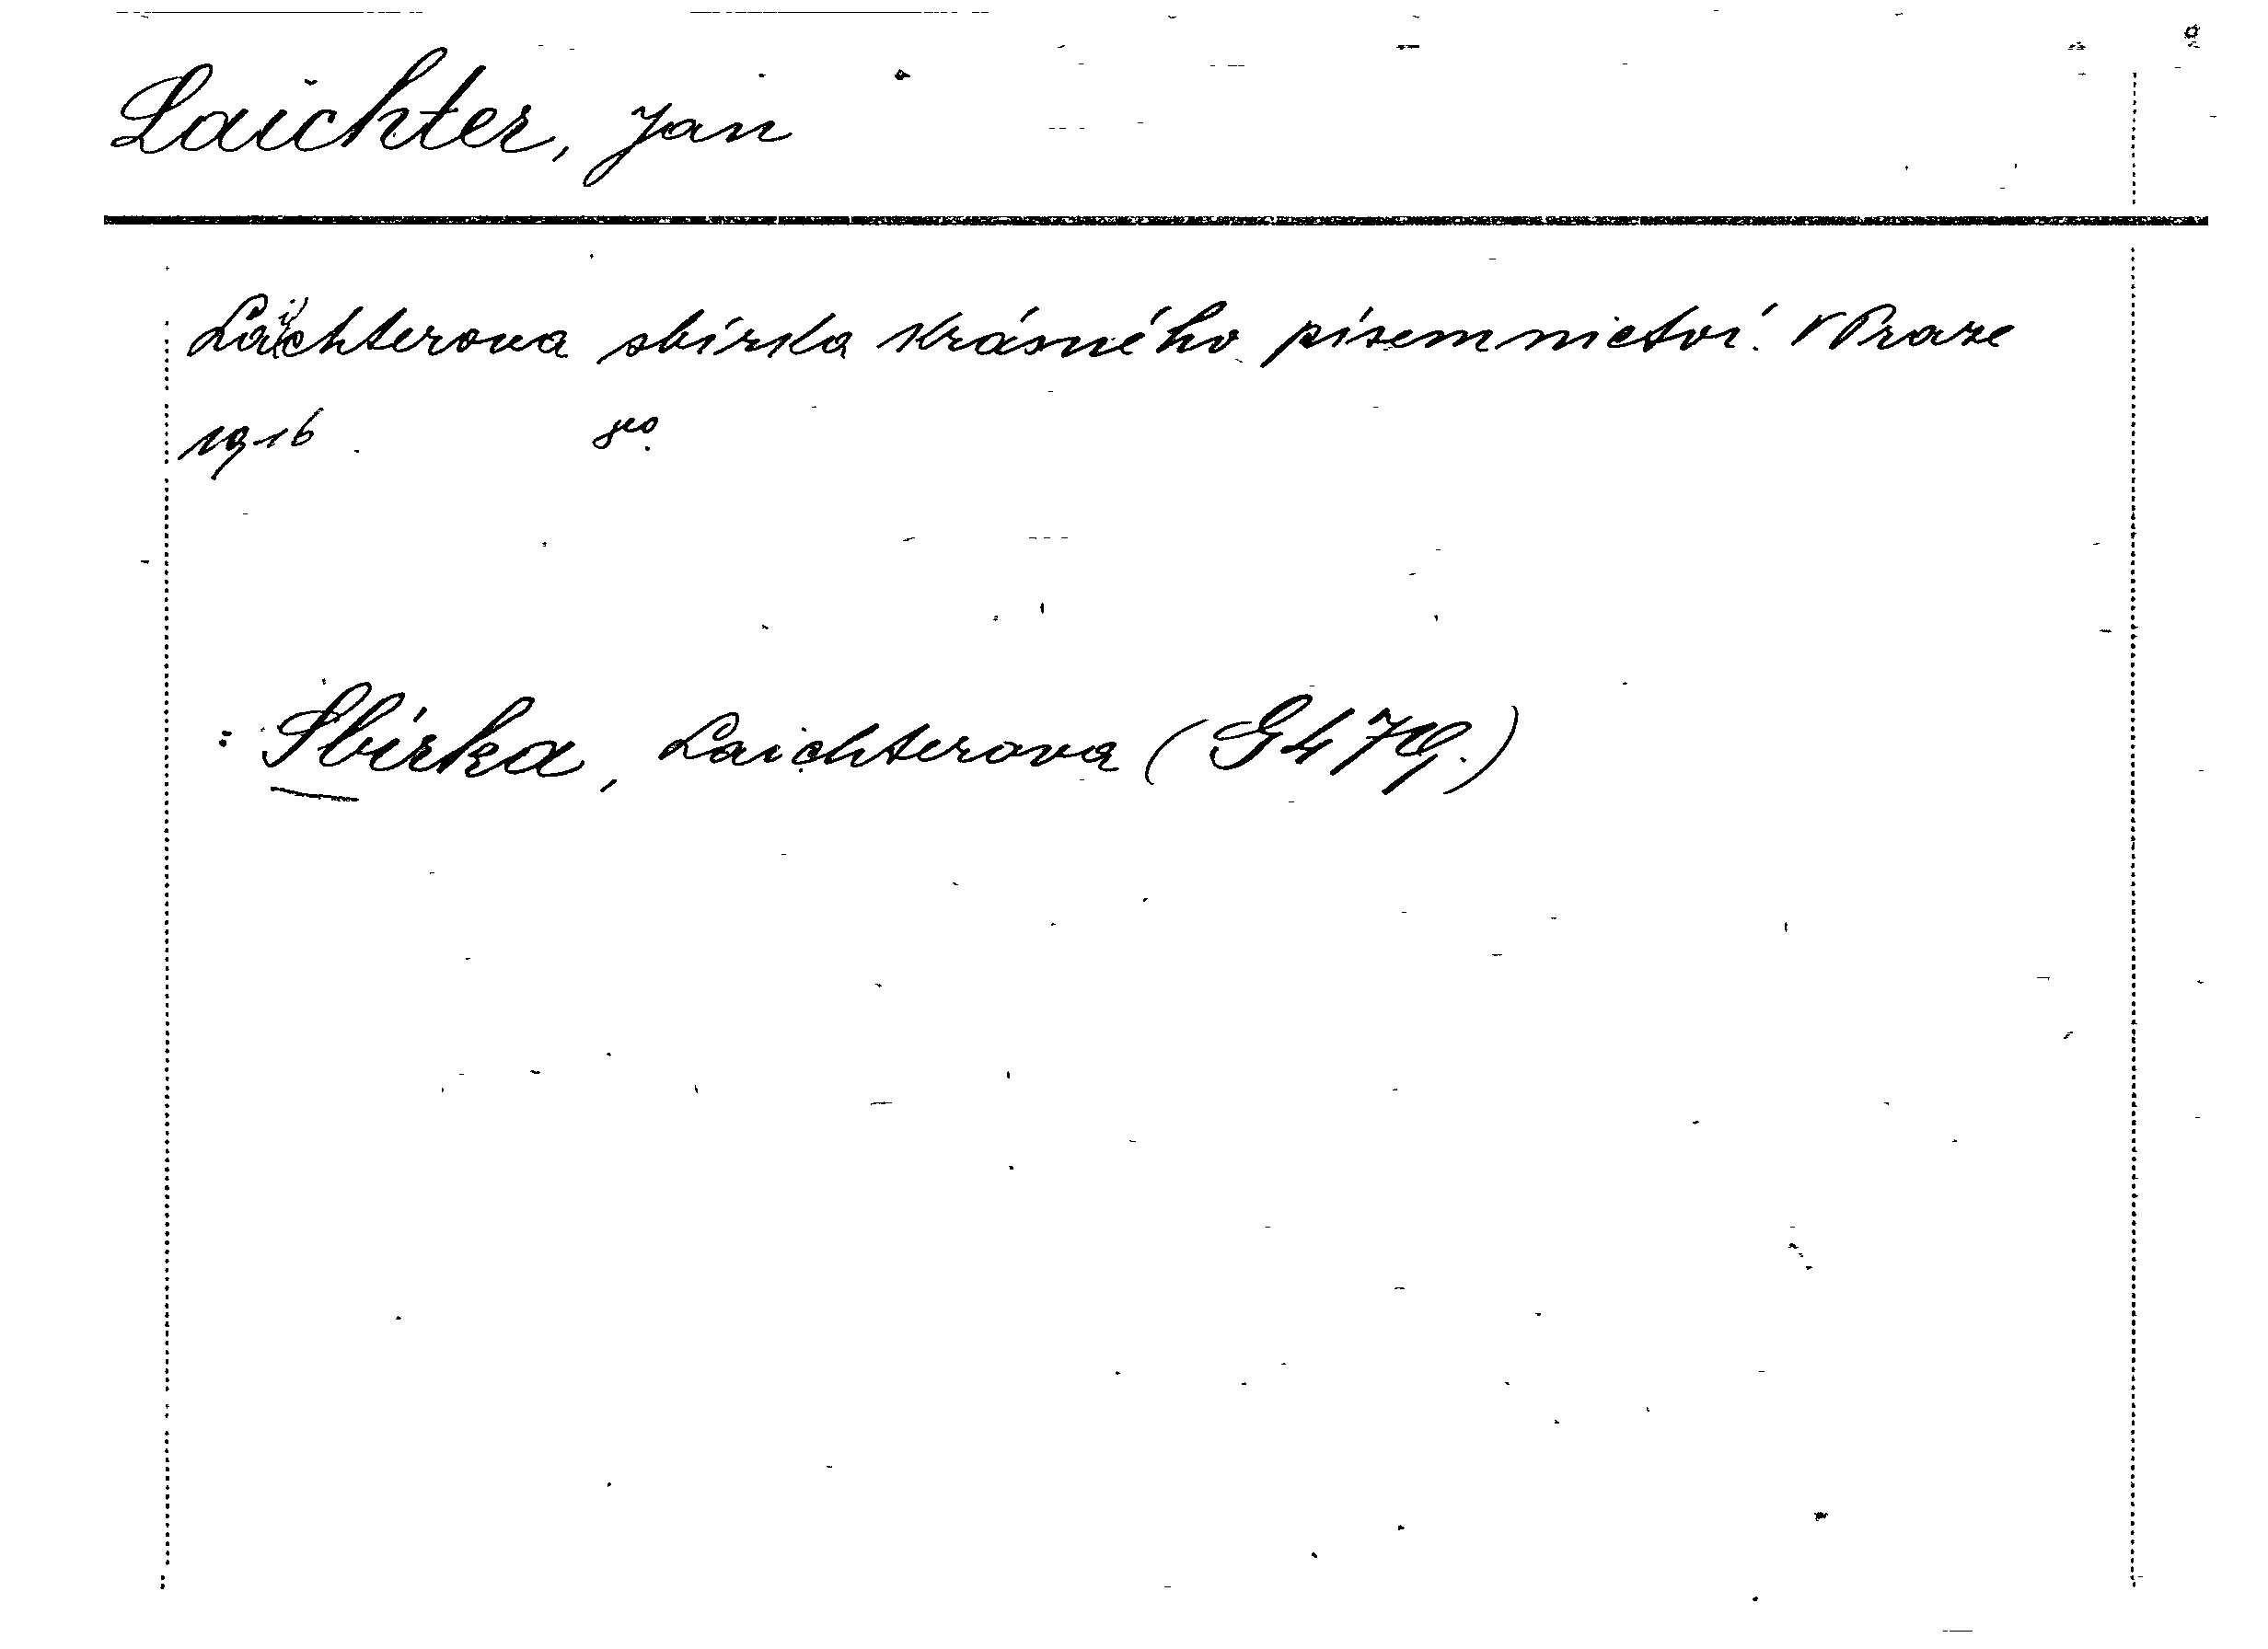 Laichter, Jan
Laichterova sbírka krásného písemnictví. V Praze
1916. 8º.
: Sbírka, Laichterova (G 479.)